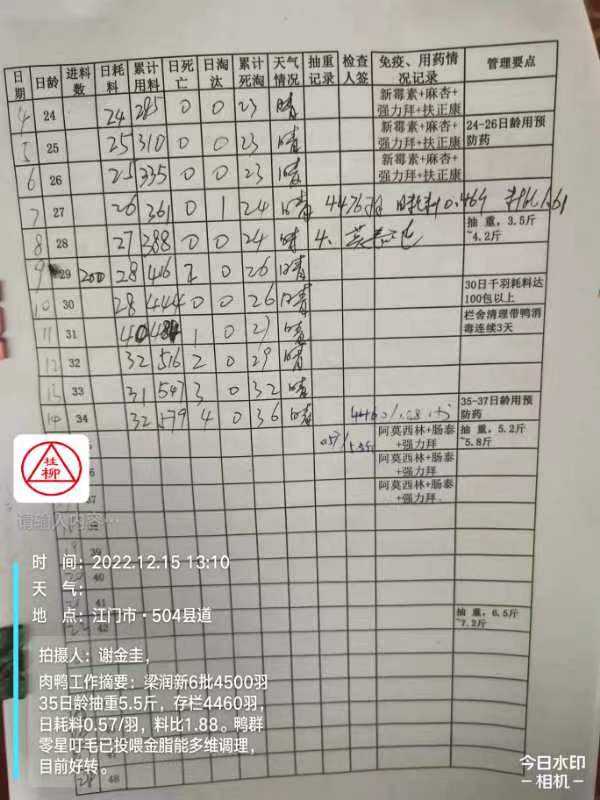 日期 日龄 进料数 日耗料 累计用料 日死亡 日淘汰 累计死淘 天气情况 抽重记录 检查人签 免疫、用药情况记录 管理要点
4 24 24 285 0 0 23 晴 新霉素+麻杏+强力拜+扶正康
5 25 25 310 0 0 23 晴 新霉素+麻杏+强力拜+扶正康 24-26日龄用预防药
6 26 25 335 0 0 23 晴 新霉素+麻杏+强力拜+扶正康
7 27 26 361 0 1 24 晴 4476 日耗料0.469 料比1.61
8 28 27 388 0 0 24 晴 4. 抽重,3.5斤~4.2斤
9 29 200 28 416 2 0 26 晴
10 30 28 444 0 0 26 晴 30日千羽耗料达100包以上
11 31 40 484 1 0 27 晴 栏舍清理带鸭消毒连续3天
12 32 32 516 2 0 29 晴
13 33 31 547 3 0 32 晴
14 34 32 579 4 0 36 晴 4460 35-37日龄用预防药
阿莫西林+肠泰+强力拜 抽重,5.2斤~5.8斤
阿莫西林+肠泰+强力拜
阿莫西林+肠泰+强力拜
39
40
42 抽重,6.5斤~7.2斤
28 48
桂柳
请输入内容…
时 间:2022.12.15 13:10
天 气:
地 点:江门市·504县道
拍摄人:谢金圭,
肉鸭工作摘要:梁润新6批4500羽
35日龄抽重5.5斤,存栏4460羽,
日耗料0.57/羽,料比1.88。鸭群
零星叮毛已投喂金脂能多维调理,
目前好转。
今日水印
-相机-